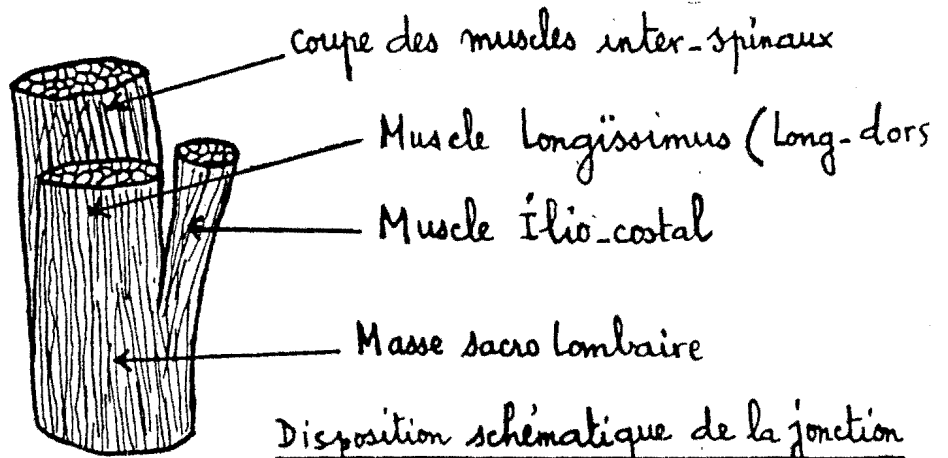 coupe des muscles inter-spinaux
Muscle Longïssimus (Long-dors
Muscle Ílio-costal
Masse sacro Lombaire
Disposition schématique de la jonction